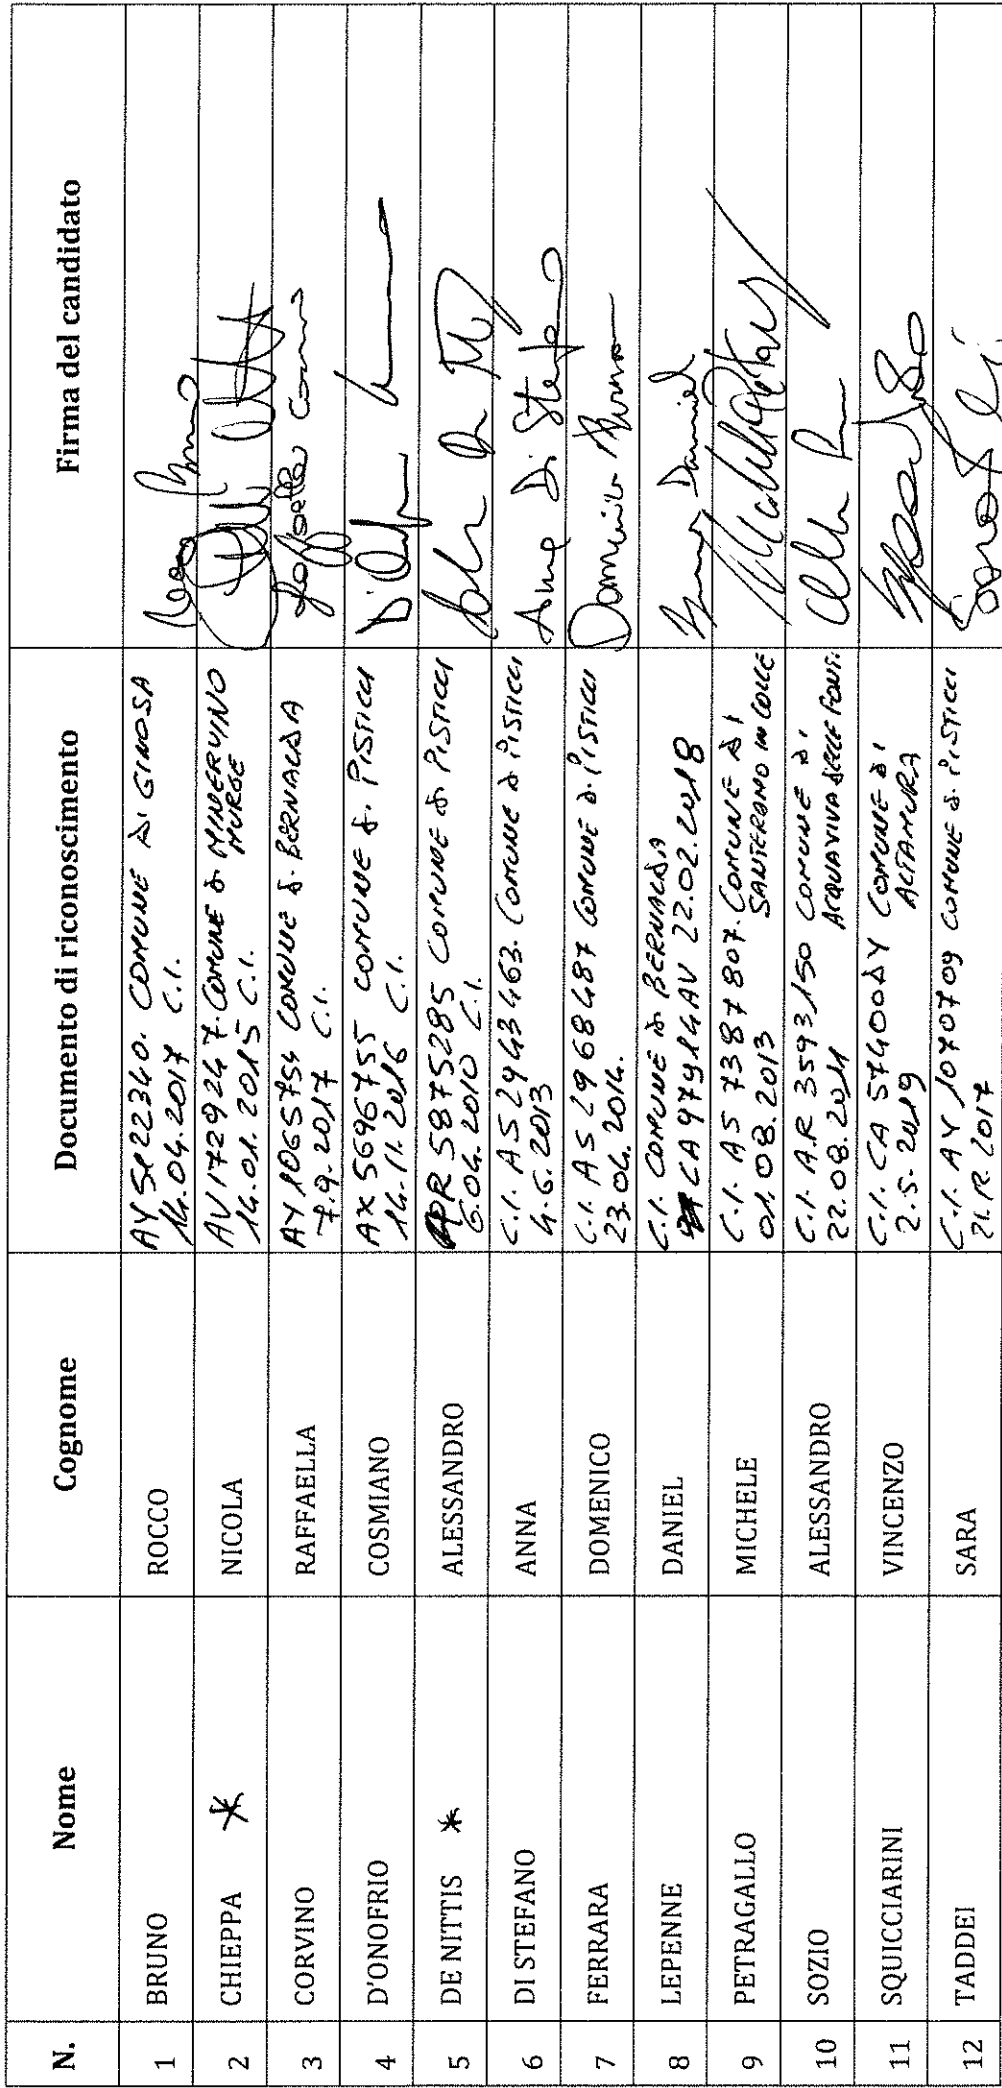 N. Nome Cognome Documento di riconoscimento Firma del candidato
1 BRUNO ROCCO AY COMUNE DI GINOSA
14.04.2017 C.I.
2 CHIEPPA * NICOLA AV 1729247. COMUNE DI MINERVINO
MURGE
14.01.2015 C.I.
3 CORVINO RAFFAELLA AY 1065754 COMUNE DI BERNALDA
7.9.2017 C.I.
4 D'ONOFRIO COSMIANO AX 5696755 COMUNE DI PISTICCI
14.11.2016 C.I.
5 DE NITTIS * ALESSANDRO AR 5875285 COMUNE DI PISTICCI
6.04.2010 C.I.
6 DI STEFANO ANNA C.I. AS 2943463. COMUNE DI PISTICCI Anna Di Stefano
4.6.2013
7 FERRARA DOMENICO C.I. AS 2968487 COMUNE DI PISTICCI
23.04.2014.
8 LEPENNE DANIEL C.I. COMUNE DI BERNALDA Daniel
22.02.2018
9 PETRAGALLO MICHELE C.I. AS 7387807. COMUNE DI
01.08.2013 SANTERAMO IN COLLE
10 SOZIO ALESSANDRO C.I. AR 3593150 COMUNE DI
22.08.2011 ACQUAVIVA DELLE FONTI
11 SQUICCIARINI VINCENZO C.I. CA 57400DY COMUNE DI
2.5.2019 ALTAMURA
12 TADDEI SARA C.I. AY 1070709 COMUNE DI PISTICCI